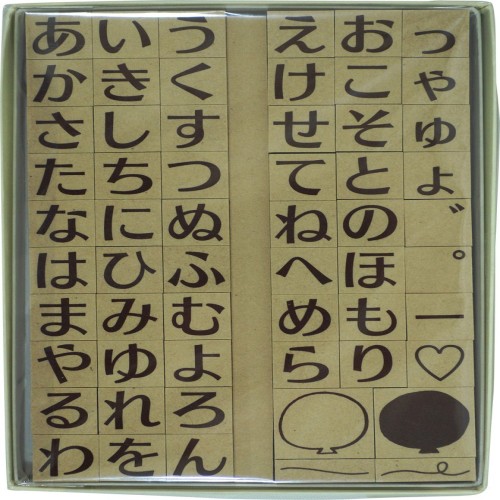 あいうえおっ
かきくけこゃ
さしすせそゅ
たちつてとょ
なにぬねの゛
はひふへほ゜
まみむめもー
やゆよらり♡
るれろ
わをん